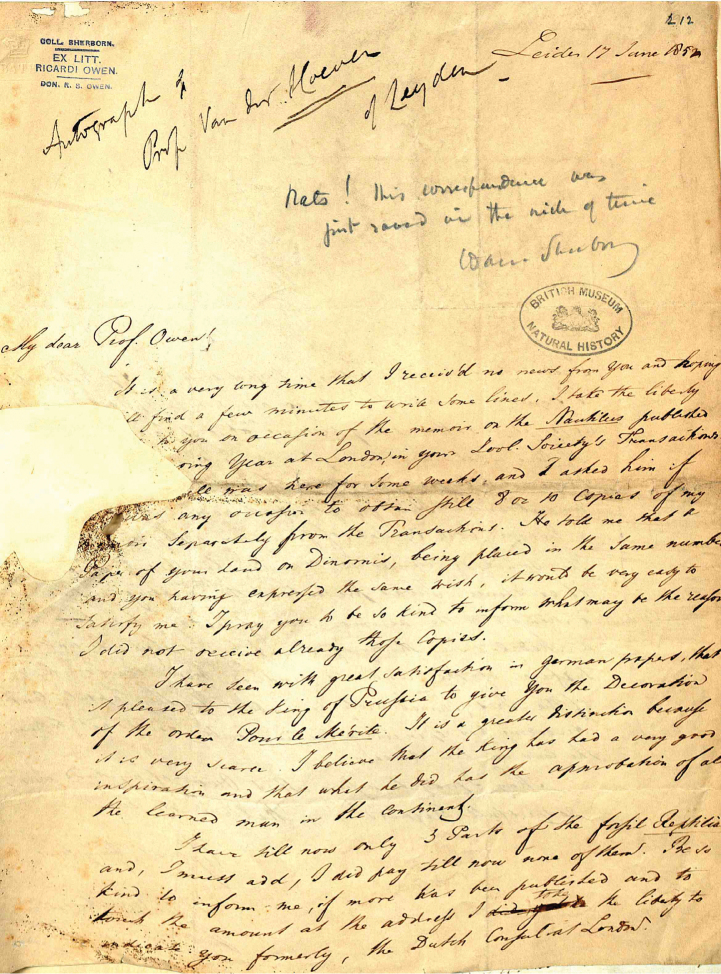 212
COLL. SHERBORN.
EX LITT.
RICARDI OWEN.
DON. R. S. OWEN.
Leiden 17 June 1852
Autograph of
Prof Van der Hoeven
of Leyden
Rats! This correspondence was
just saved in the nick of time
Sherborn
BRITISH MUSEUM
NATURAL HISTORY
My dear Prof. Owen!
It is a very long time that I receiv'd no news from You and hoping
find a few minutes to write some lines, I take the liberty
to you on occasion of the memoir on the Nautilus published
Year at London, in your Zool. Society's Transactions
was here for some weeks, and I asked him if
was any occasion to obtain still 8 or 10 Copies of my
separately from the Transactions. He told me that a
Paper of your hand on Dinornis, being placed in the same number
and you having expressed the same wish, it would be very easy to
satisfy me. I pray you to be so kind to inform what may be the reason
I did not receive already those Copies.
I have seen with great satisfaction in german papers, that
it pleased to the King of Prussia to give You the Decoration
of the order Pour le Mérite. It is a greater distinction because
it is very scarce. I believe that the King has had a very good
inspiration and that what he did has the approbation of all
the learned man in the continent.
I have till now only 3 Parts of the fossil Reptilia
and, I must add, I did pay till now none of them. Be so
kind to inform me, if more has been published and to
the amount at the address I did take the liberty to
indicate you formerly, the Dutch Consul at London.